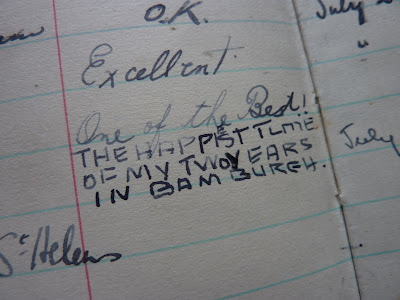 O.K.
July
Excellent.
"
One of the Best!!
THE HAPPIST TIME
OF MY TWO YEARS
IN BAMBURGH.
July
St Helens